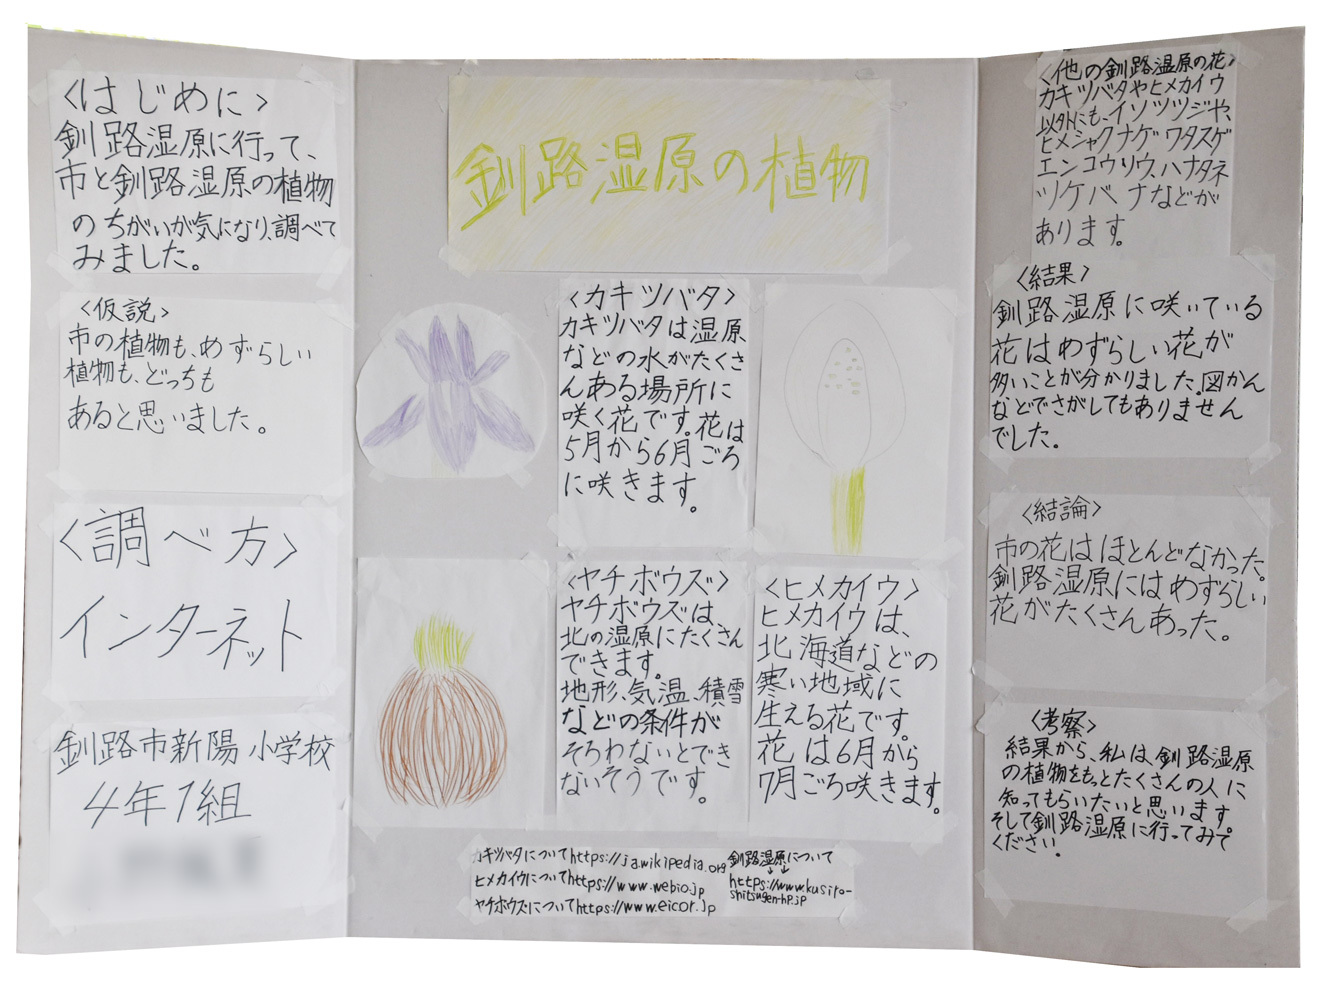 〈はじめに〉
釧路湿原に行って、
市と釧路湿原の植物
のちがいが気になり、調べて
みました。
〈仮説〉
市の植物も、めずらしい
植物も、どっちも
あると思いました。
〈調べ方〉
インターネット
釧路市新陽小学校
4年1組
釧路湿原の植物
〈カキツバタ〉
カキツバタは湿原
などの水がたくさ
んある場所に
咲く花です。花は
5月から6月ごろ
に咲きます。
〈ヤチボウズ〉
ヤチボウズは、
北の湿原にたくさん
できます。
地形、気温、積雪
などの条件が
そろわないとでき
ないそうです。
〈ヒメカイウ〉
ヒメカイウは、
北海道などの
寒い地域に
生える花です。
花は6月から
7月ごろ咲きます。
カキツバタについてhttps://ja.wikipedia.org
ヒメカイウについてhttps://www.webio.jp
ヤチボウズについてhttps://www.eicor.jp
釧路湿原について
↓↓
https://www.kusiro-
shitsugen-hp.jp
〈他の釧路湿原の花〉
カキツバタやヒメカイウ
以外にも、イソツツジや、
ヒメシャクナゲ ワタスゲ
エンコウソウ、ハナタネ
ツケバナなどが
あります。
〈結果〉
釧路湿原に咲いている
花はめずらしい花が
多いことが分かりました。図かん
などでさがしてもありません
でした。
〈結論〉
市の花はほとんどなかった。
釧路湿原にはめずらしい
花がたくさんあった。
〈考察〉
結果から、私は、釧路湿原
の植物をもっとたくさんの人に
知ってもらいたいと思います。
そして釧路湿原に行ってみて
ください。